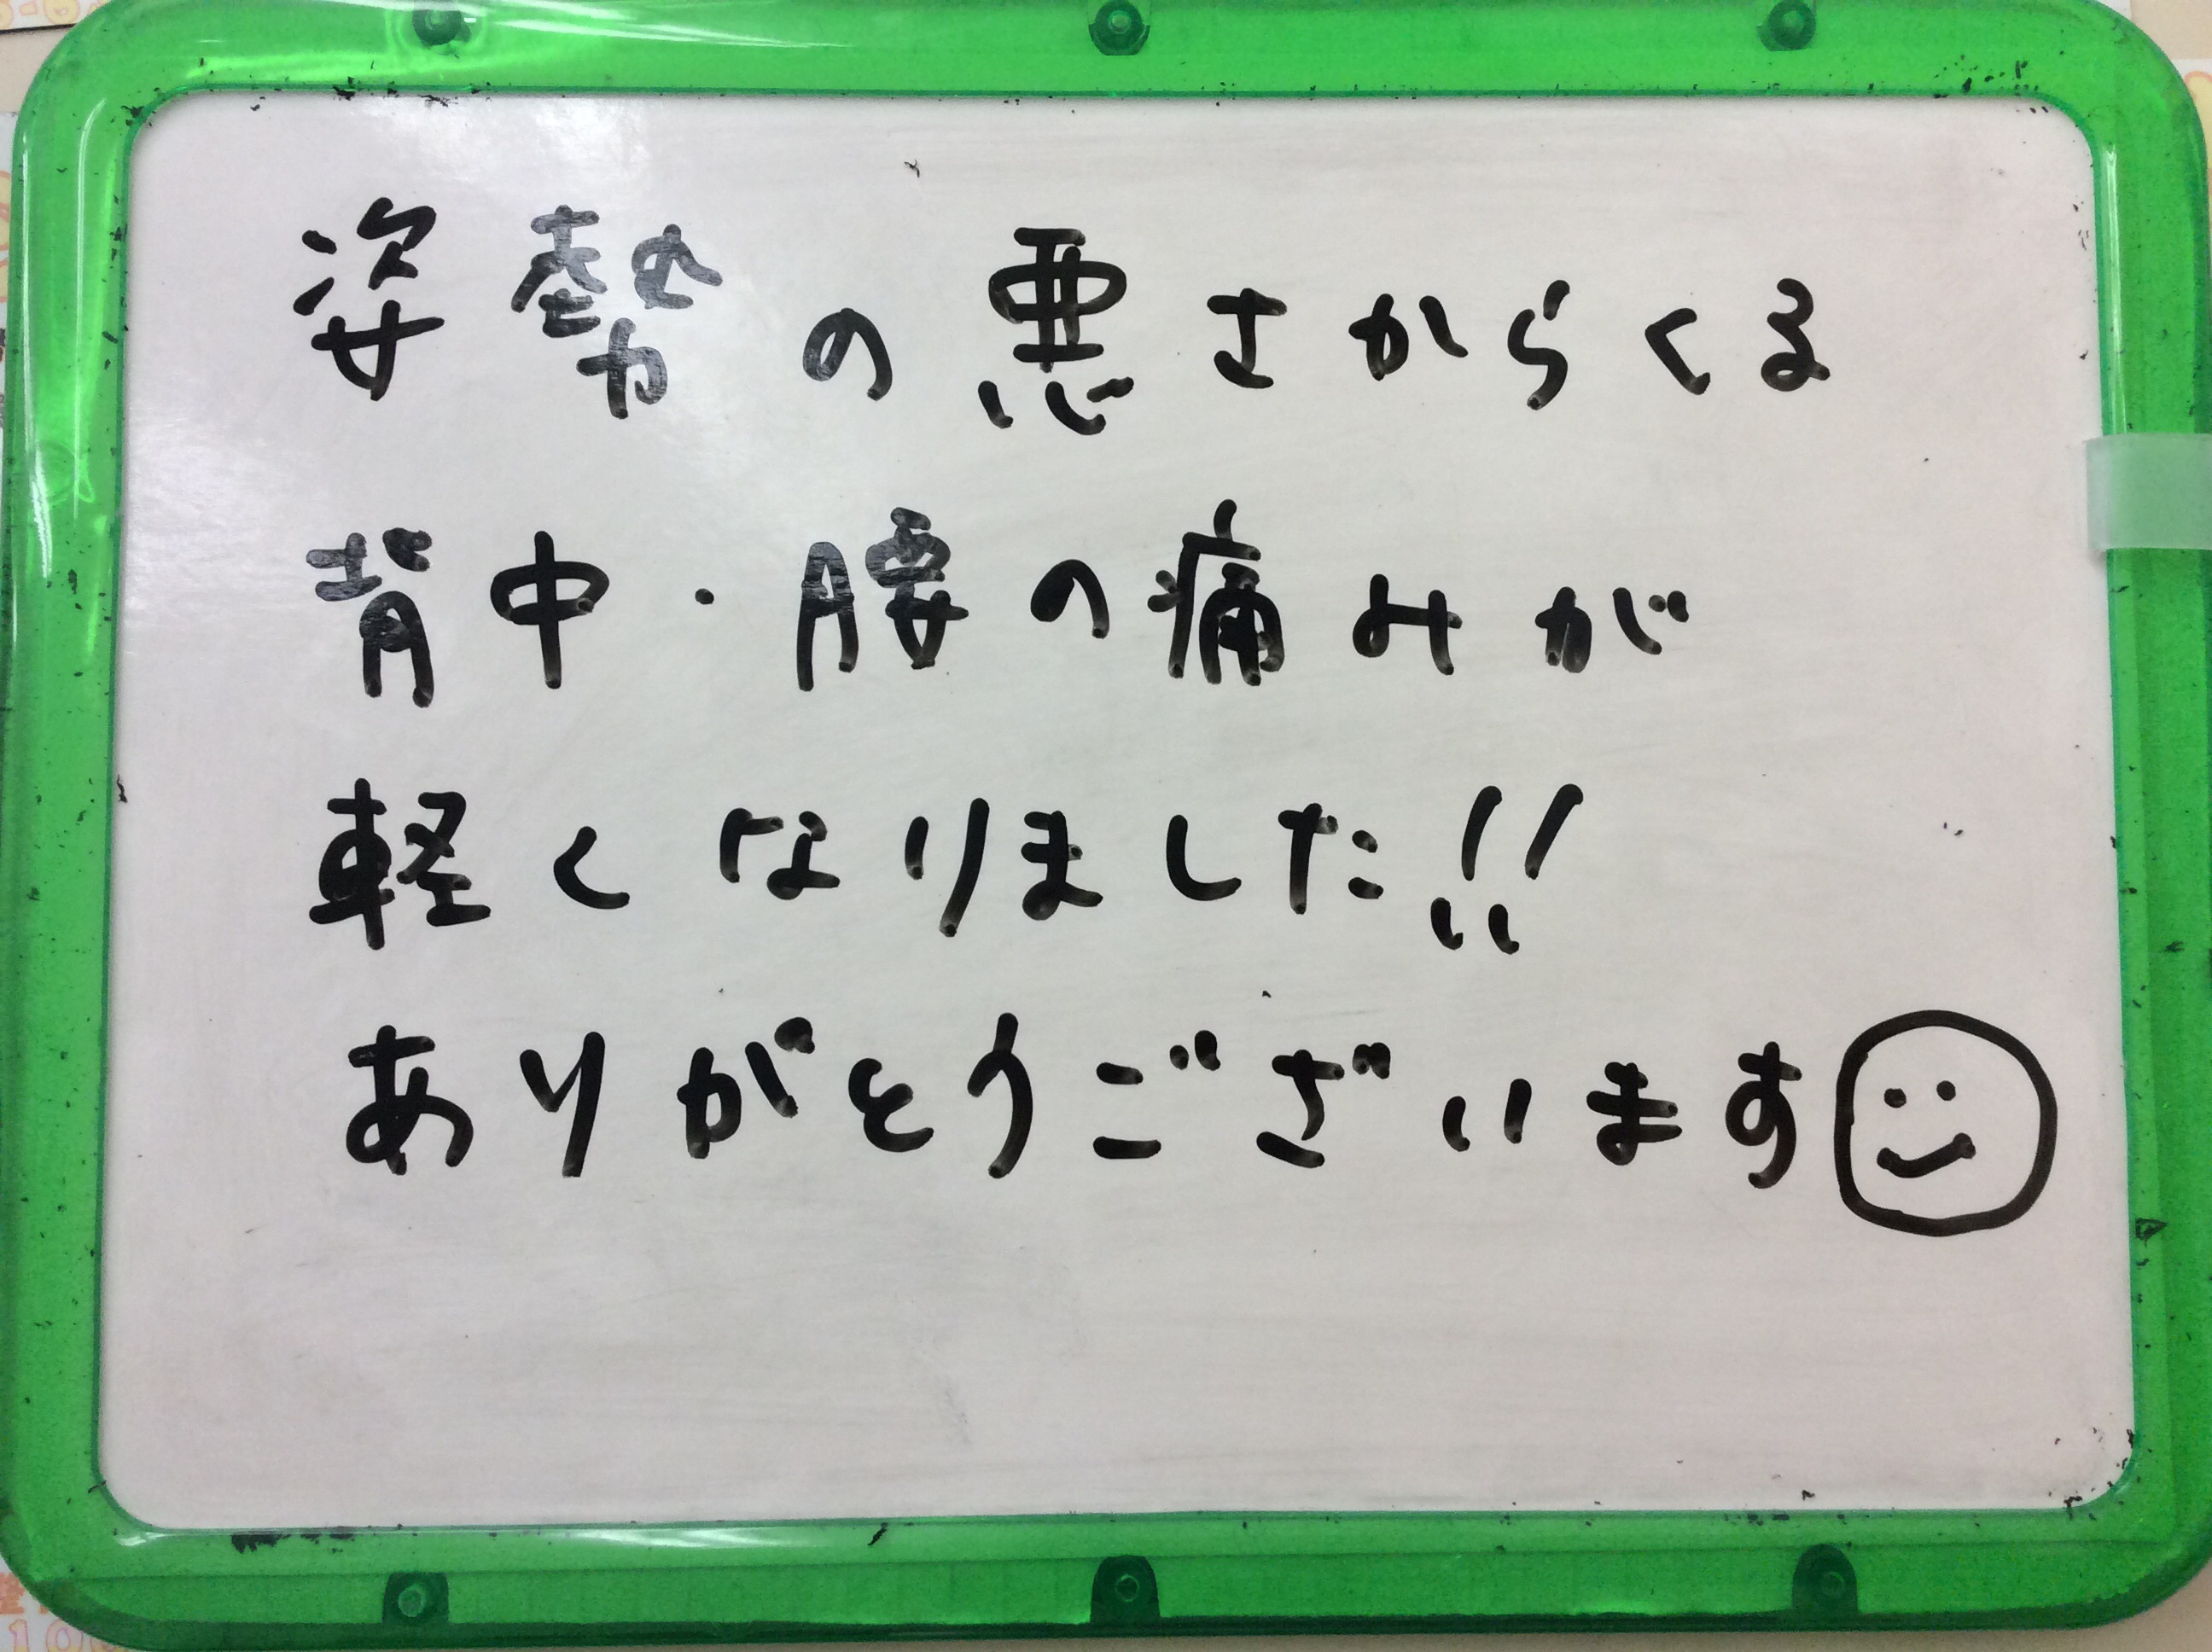 姿勢の悪さからくる
背中・腰の痛みが
軽くなりました!!
ありがとうございます